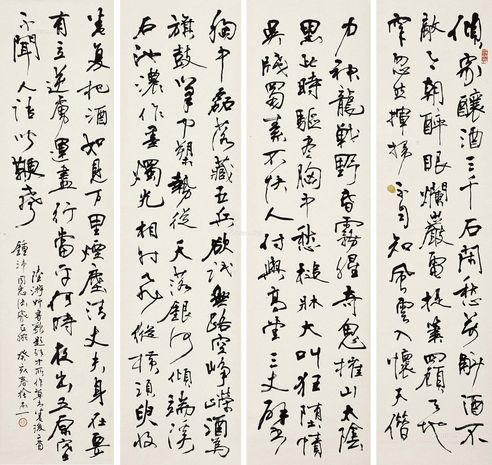 傾家釀酒三千石閑愁萬斛酒不
敵今朝醉眼爛巖電提筆四顧天地
窄忽然揮掃不自知風雲入懷天借
力神龍戰野昏霧腥奇鬼摧山太陰
黑此時驅盡胸中愁槌牀大叫狂墮幘
吳牋蜀素不快人付與高堂三丈壁
胸中磊落藏五兵欲試無路空崢嶸酒為
旗鼓筆刀槊勢從天落銀河傾端溪
石池濃作墨燭光相射飛縱橫須臾收
卷復把酒如見萬里煙塵清丈夫身在要
有立逆虜運盡行當平何時夜出五原塞
不聞人語聞鞭聲
陸游草書歌題醉中所作草書卷後二首
同志法家正腕 癸亥春徐本一